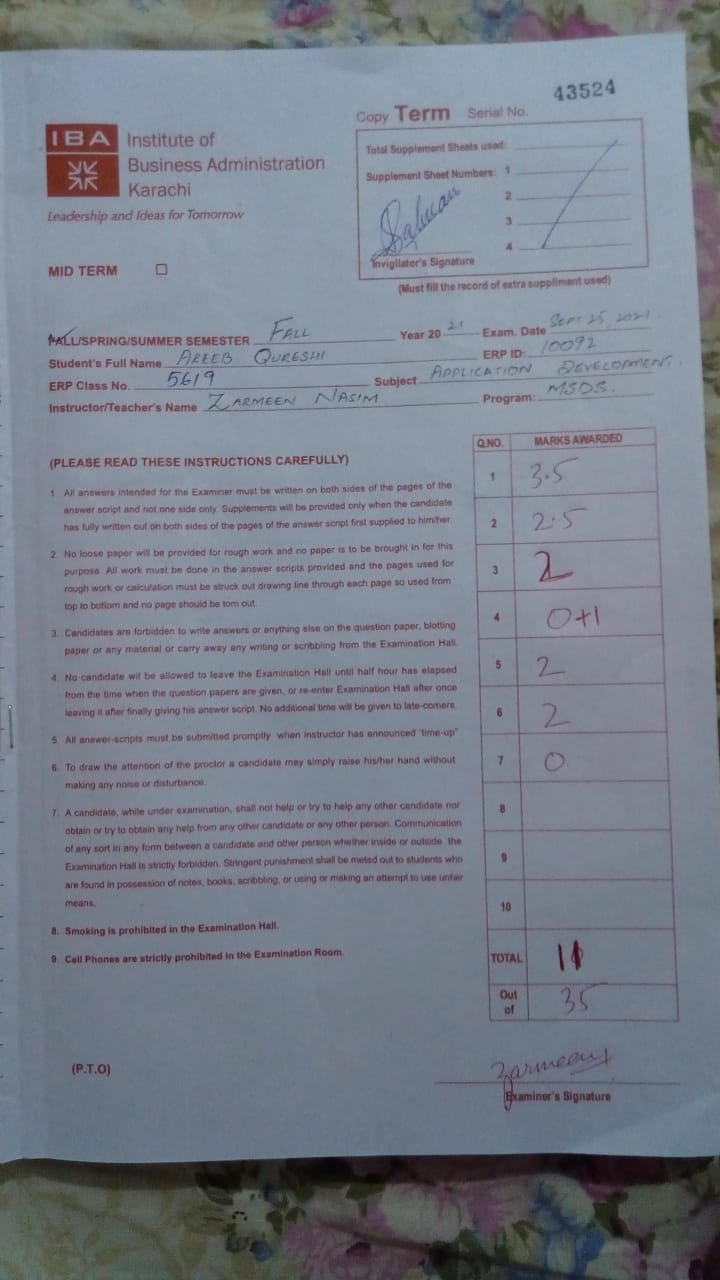 43524
Copy Term Serial No.
IBA Institute of
Business Administration
Karachi
Leadership and Ideas for Tomorrow
Total Supplement Sheets used:
Supplement Sheet Numbers: 1
2
3
4
Salman
Invigilator's Signature
(Must fill the record of extra suppliment used)
MID TERM
FALL/SPRING/SUMMER SEMESTER FALL Year 20 21 Exam. Date Sept 25, 2021
Student's Full Name AREEB QURESHI ERP ID: 10092
ERP Class No. 5619 Subject APPLICATION DEVELOPMENT.
Instructor/Teacher's Name ZARMEEN NASIM Program: MSDS.
(PLEASE READ THESE INSTRUCTIONS CAREFULLY)
1. All answers intended for the Examiner must be written on both sides of the pages of the
answer script and not one side only. Supplements will be provided only when the candidate
has fully written out on both sides of the pages of the answer script first supplied to him/her.
2. No loose paper will be provided for rough work and no paper is to be brought in for this
purpose. All work must be done in the answer scripts provided and the pages used for
rough work or calculation must be struck out drawing line through each page so used from
top to bottom and no page should be torn out.
3. Candidates are forbidden to write answers or anything else on the question paper, blotting
paper or any material or carry away any writing or scribbling from the Examination Hall.
4. No candidate wil be allowed to leave the Examination Hall until half hour has elapsed
from the time when the question papers are given, or re-enter Examination Hall after once
leaving it after finally giving his answer script. No additional time will be given to late-comers.
5. All answer-scripts must be submitted promptly when instructor has announced 'time-up"
6. To draw the attention of the proctor a candidate may simply raise his/her hand without
making any noise or disturbance.
7. A candidate, while under examination, shall not help or try to help any other candidate nor
obtain or try to obtain any help from any other candidate or any other person. Communication
of any sort in any form between a candidate and other person whether inside or outside the
Examination Hall is strictly forbidden. Stringent punishment shall be meted out to students who
are found in possession of notes, books, scribbling, or using or making an attempt to use unfair
means.
8. Smoking is prohibited in the Examination Hall.
9. Cell Phones are strictly prohibited in the Examination Room.
(P.T.O)
Q.NO. MARKS AWARDED
1 3.5
2 2.5
3 2
4 0+1
5 2
6 2
7 0
8
9
10
TOTAL 11
Out of 35
Zarmeen
Examiner's Signature